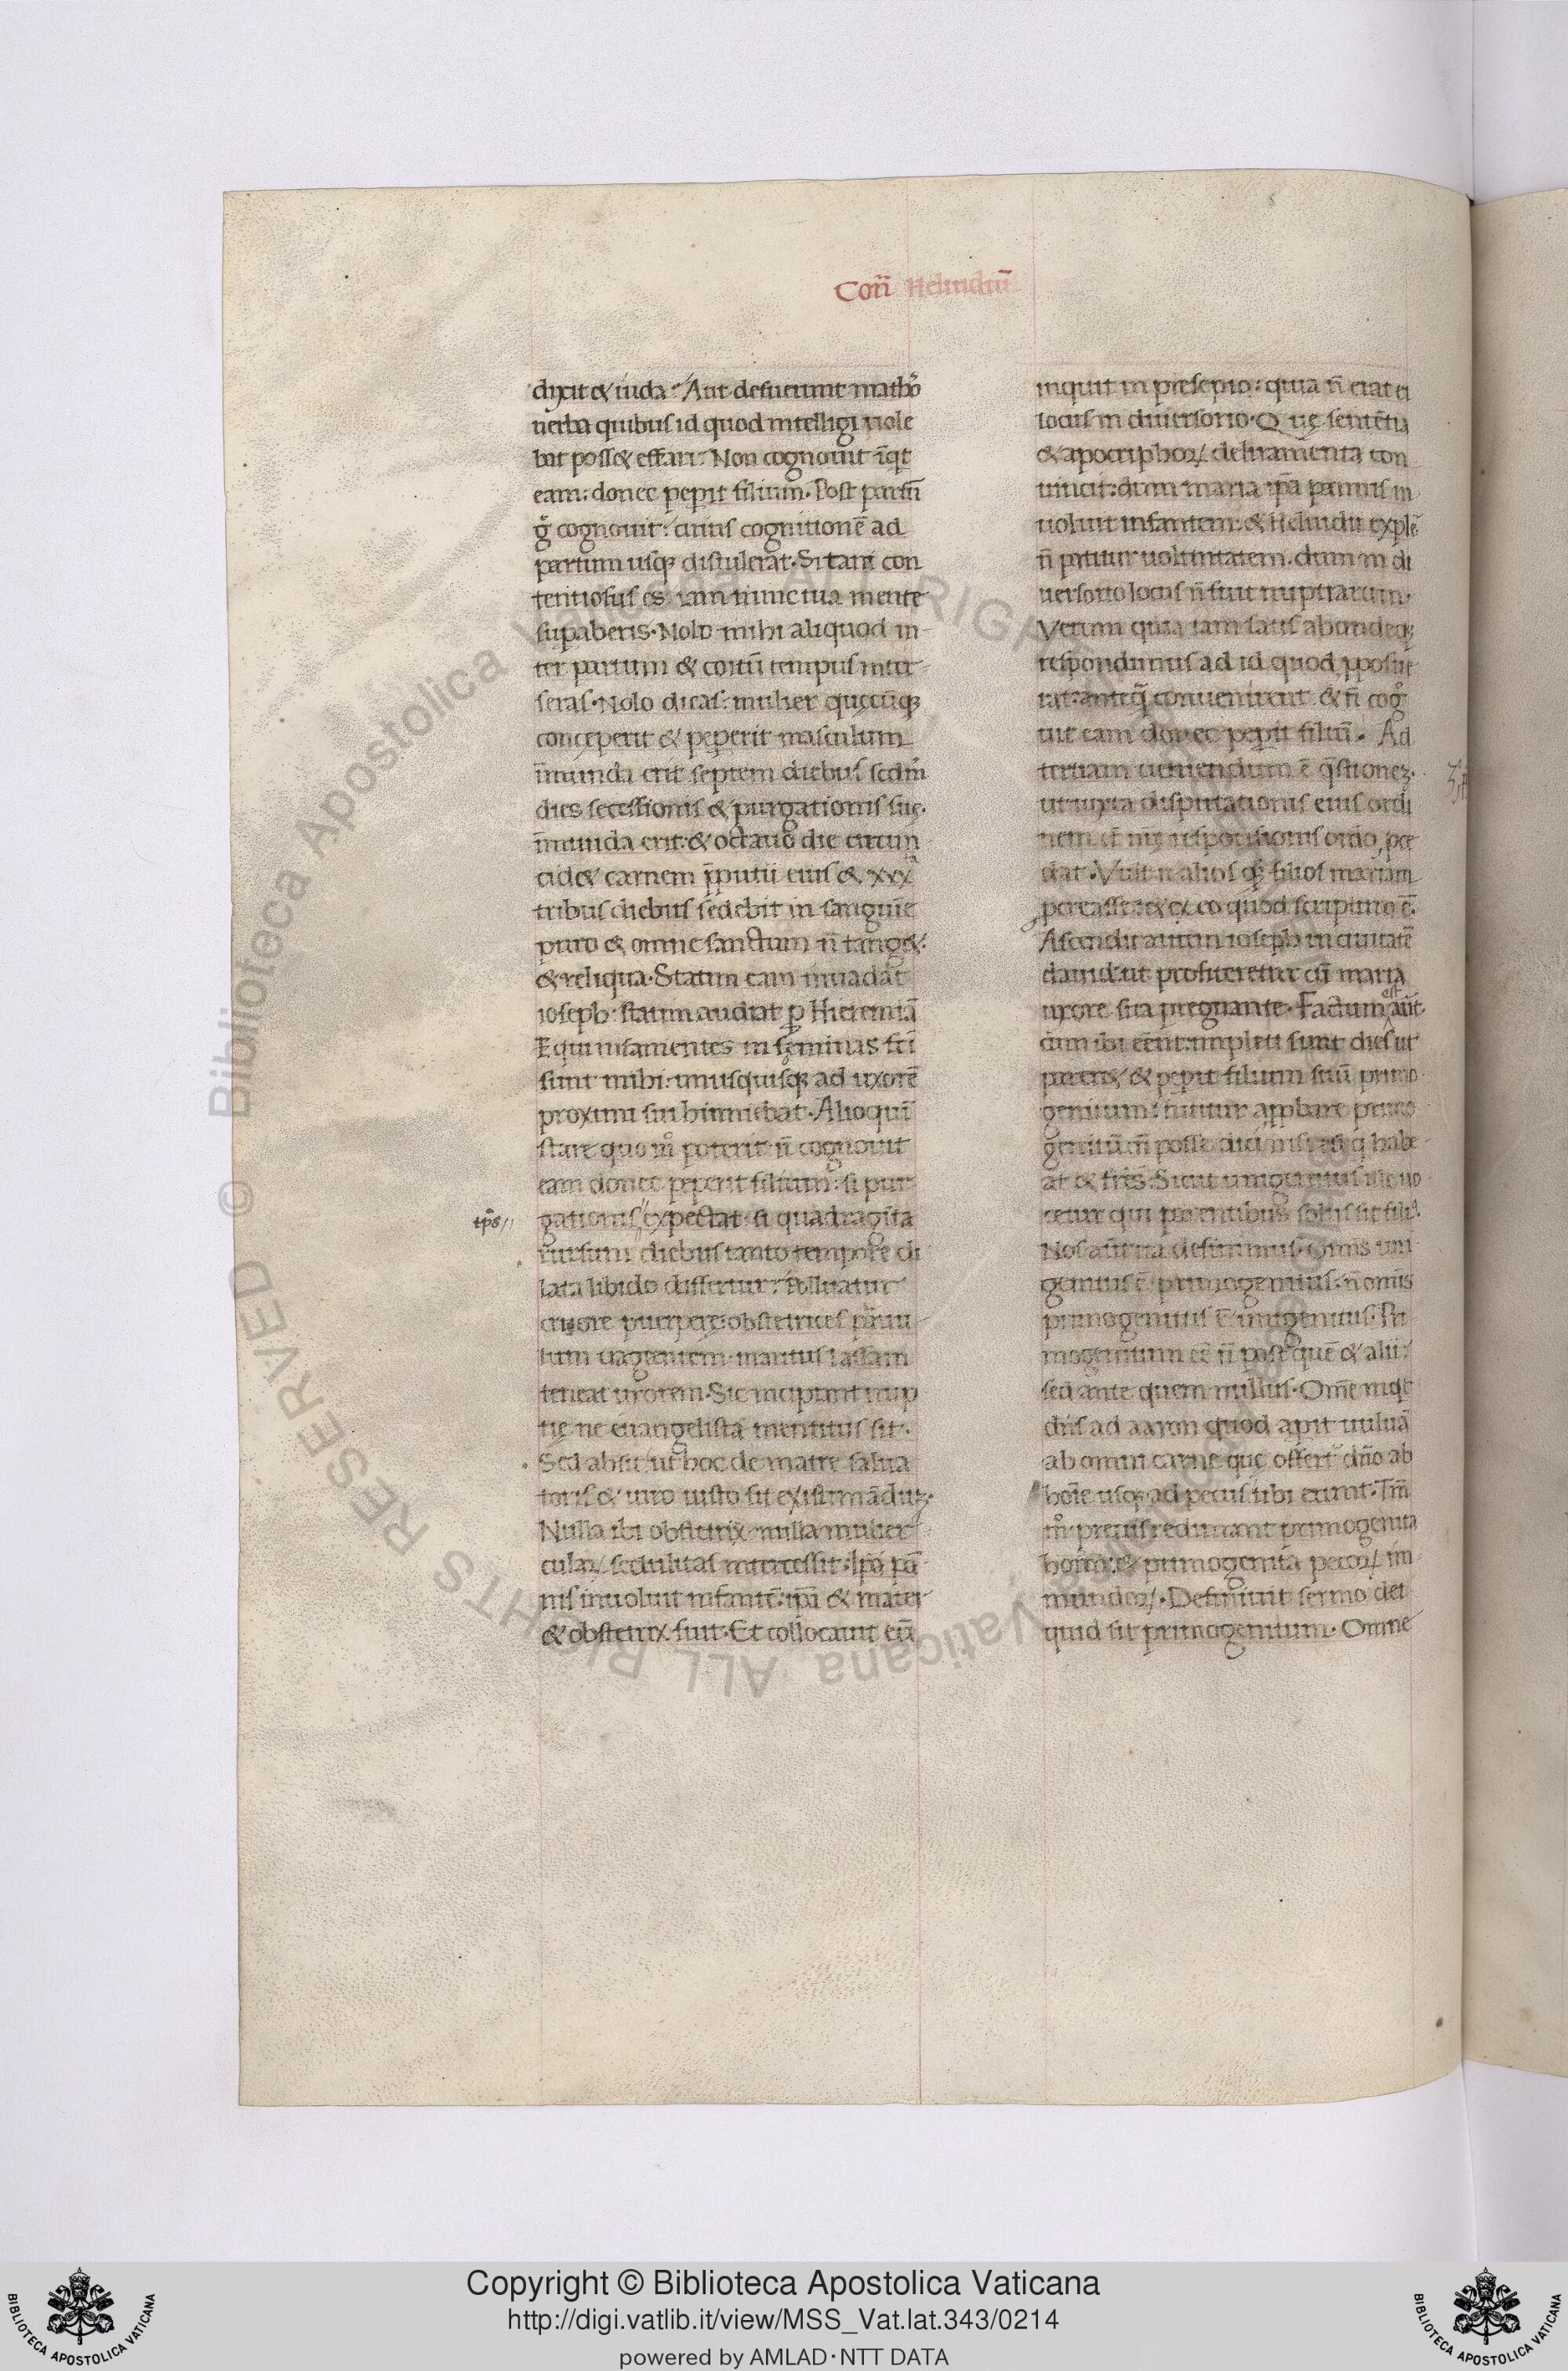 Con̄ Heluidiū
dixit & iuda. Aut defuerunt mathō
uerba quibus id quod intelligi uole
bat poss& effari. Non cognouit īqt
eam: donec peperit filium. Post partū
g̊ cognouit: cuius cognitionē ad
partum usq; distulerat. Si tam con
tentiosus es iam nunc tua mente
supaberis. Nolo mihi aliquod in
ter partum & coitū tempus inter
seras. Nolo dicas: mulier quęcūq;
conceperit & pepererit masculum
īmunda erit septem diebus sedm̄
dies secessionis & purgationis suę.
īmunda erit. & octauo die circun
cid& carnem p̄putii eius & xxx
tribus diebus sedebit in sanguīe
puro & omne sanctum n̄ tang&.
& reliqua. Statim eam inuadat
ioseph: statim audiat p Hieremiā
Equi insanientes in feminas fc̄i
sunt mihi: unusquisq; ad uxorē
proximi sui hinniebat. Alioquī
stare quo m̊ poterit n̄ cognouit
eam donec peperit filium: si pur
gationis expectat si quadragīta
tp̄s
rursum diebus tanto tempore di
lata libido differtur. Polluatur
cruore puerpere: obstetrices paruu
lum uagientem maritus lassam
teneat uxorem. Sic incipiant nup
tię ne euangelista mentitus sit.
Sed absit ut hoc de matre salua
toris & uiro iusto sit existimādū.
Nulla ibi obstetrix nulla mulier
cularꝝ sedulitas intercessit. Ipā pā
nis inuoluit infantē: ipā & mater
& obstetrix fuit. Et collocauit eū
inquit in presepio: quia n̄ erat ei
locus in diuersorio. Quę sentētia
& apocriphoꝝ deliramenta con
uincit: dum maria ipā pannis in
uoluit infantem: & Heluidii explē
n̄ patitur uoluntatem. dum in di
uersorio locus n̄ fuit nuptiarum.
Verum quia iam satis abundeq;
respondimus ad id quod pposue
rat: anteq̄ conuenirent. & n̄ cog̊
uit eam donec peperit filiū. Ad
tertiam ueniendum ē q̄stionez.
ut iuxta disputationis eius ordi
nem
dat. Vult n alios q̊ filios mariam
pcreasse: ex eo quod scriptum ē.
Ascendit autem ioseph in ciuitatē
dauid: ut profiteretur cū maria
uxore sua pregnante. Factum est aūt
cum ibi eēnt: impleti sunt dies ut
parer& & pepit filium suū primo
genitum: nititur appbare primo
genitū n̄ posse dici nisi eū q habe
at & frēs. Sicut unigenitus ille uo
cetur qui parentibus solus sit filius.
Nos aūt ita definimus. Omīs uni
genitus ē primogenitus: n̄ omīs
primogenitus ē unigenitus. Pri
mogenitum eē n̄ post quē & alii:
sed ante quem nullus. Omē inqt
dn̄s ad aaron quod apit uuluā
ab omni carne quę offert dn̄o ab
hoīe usq; ad pecus tibi erunt. Tm̄
m̊ preciis redimant primogenita
hoīm: & primogenita pecoꝝ im
mundoꝝ. Definiuit sermo dei
quid sit primogenitum. Omne
Copyright © Biblioteca Apostolica Vaticana
http://digi.vatlib.it/view/MSS_Vat.lat.343/0214
powered by AMLAD·NTT DATA